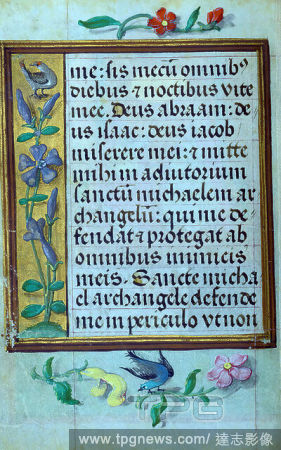 me: sis mecū omnibꝰ
diebus ⁊ noctibus vite
mee. Deus abraam: de
us isaac: deus iacob
miserere mei: ⁊ mitte
mihi in adiutorium
sanctū michaelem ar
changelū: qui me de
fendat ⁊ protegat ab
omnibus inimicis
meis. Sancte micha
el archangele defende
me in periculo vt non
TPG
www.tpgnews.com/ 達志影像